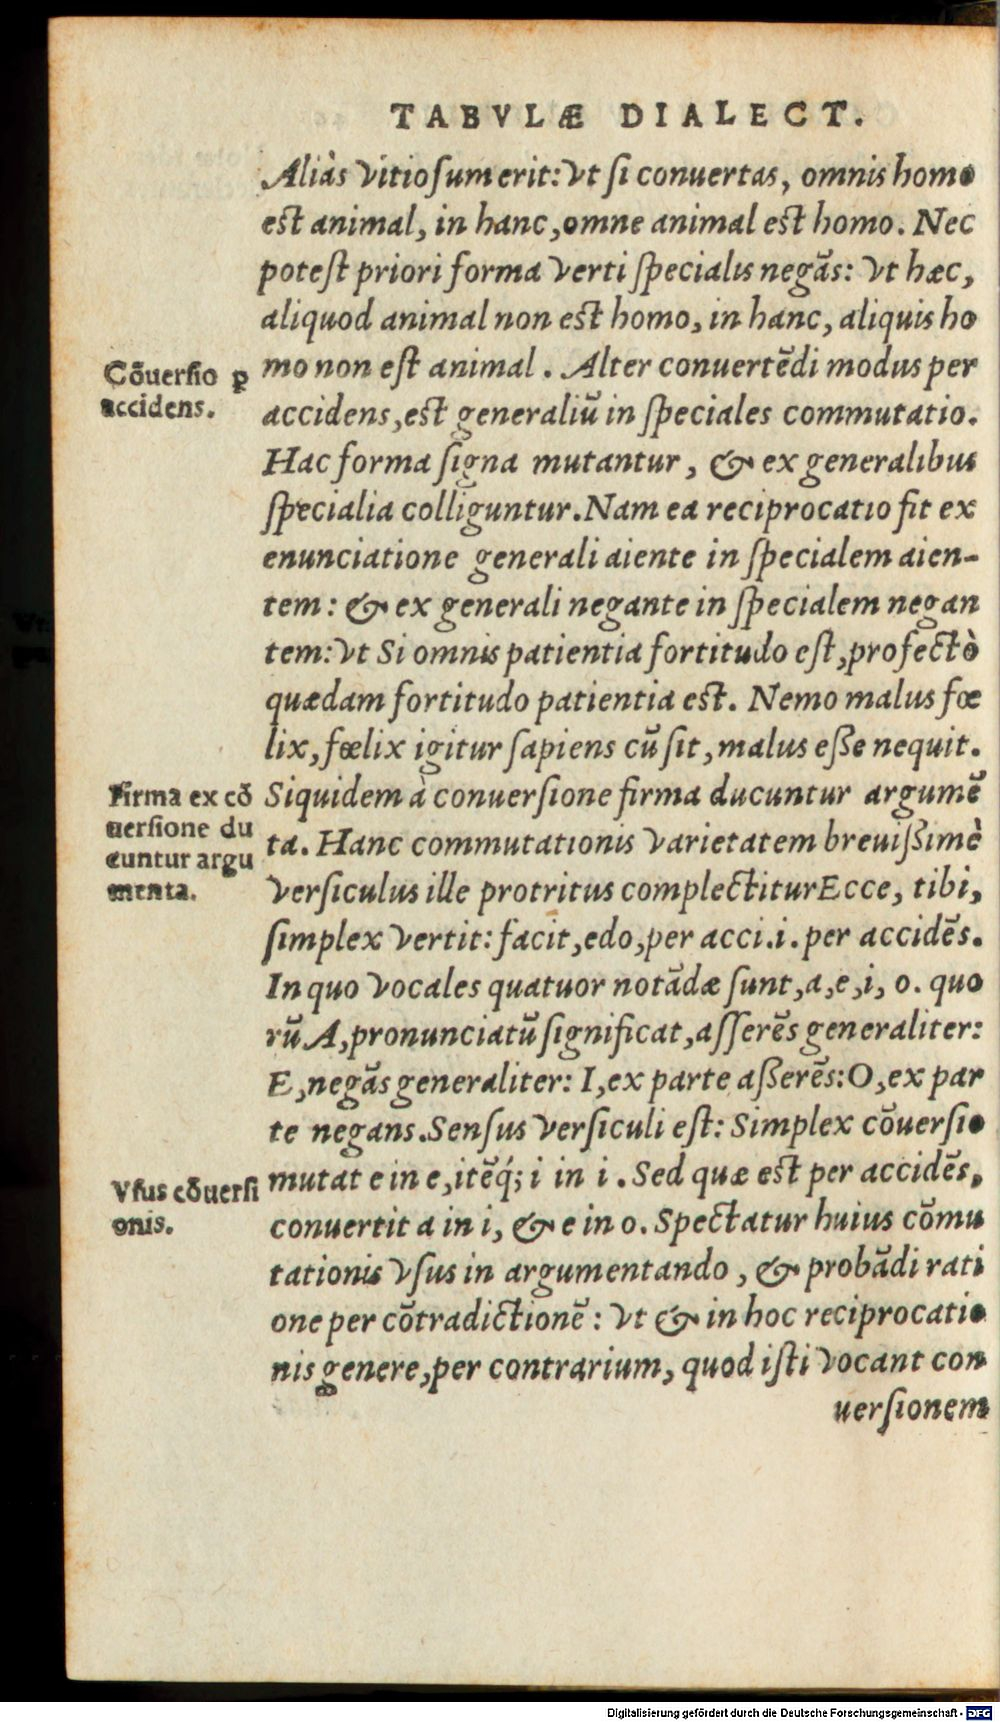 TABVLÆ DIALECT.
Aliàs vitiosum erit: vt si conuertas, omnis homo
est animal, in hanc, omne animal est homo. Nec
potest priori forma verti specialis negãs: vt hæc,
aliquod animal non est homo, in hanc, aliquis ho
mo non est animal. Alter conuertẽdi modus per
Cõuersio ꝑ
accidens.
accidens, est generaliũ in speciales commutatio.
Hac forma signa mutantur, & ex generalibus
specialia colliguntur. Nam ea reciprocatio fit ex
enunciatione generali aiente in specialem aien-
tem: & ex generali negante in specialem negan
tem: vt Si omnis patientia fortitudo est, profectò
quædam fortitudo patientia est. Nemo malus fœ
lix, fœlix igitur sapiens cũ sit, malus esse nequit.
Firma ex cõ
uersione du
cuntur argu
menta.
Siquidem à conuersione firma ducuntur argumẽ
ta. Hanc commutationis varietatem breuissimè
versiculus ille protritus complectitur Ecce, tibi,
simplex vertit: facit, edo, per acci. i. per accidẽs.
In quo vocales quatuor notãdæ sunt, a, e, i, o. quo
rũ A, pronunciatũ significat, asserẽs generaliter:
E, negãs generaliter: I, ex parte asserẽs: O, ex par
te negans. Sensus versiculi est: Simplex cõuersio
mutat e in e, itẽq́; i in i. Sed quæ est per accidẽs,
Vsus cõuersi
onis.
conuertit a in i, & e in o. Spectatur huius cõmu
tationis vsus in argumentando, & probãdi rati
one per cõtradictionẽ: vt & in hoc reciprocatio
nis genere, per contrarium, quod isti vocant con
uersionem
Digitalisierung gefördert durch die Deutsche Forschungsgemeinschaft - DFG